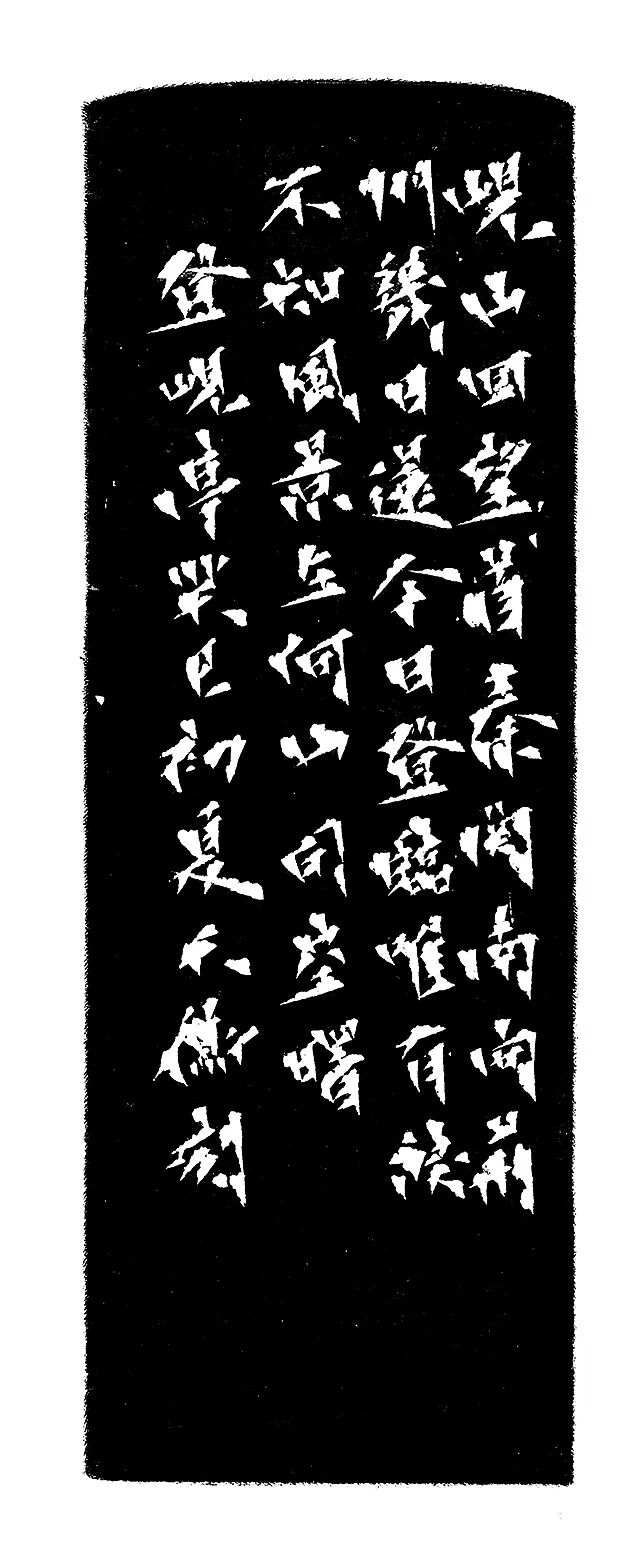 峴山回望首秦關南向荊
州幾日還今日登臨唯有淚
不知風景在何山司空曙
登峴亭癸巳初夏